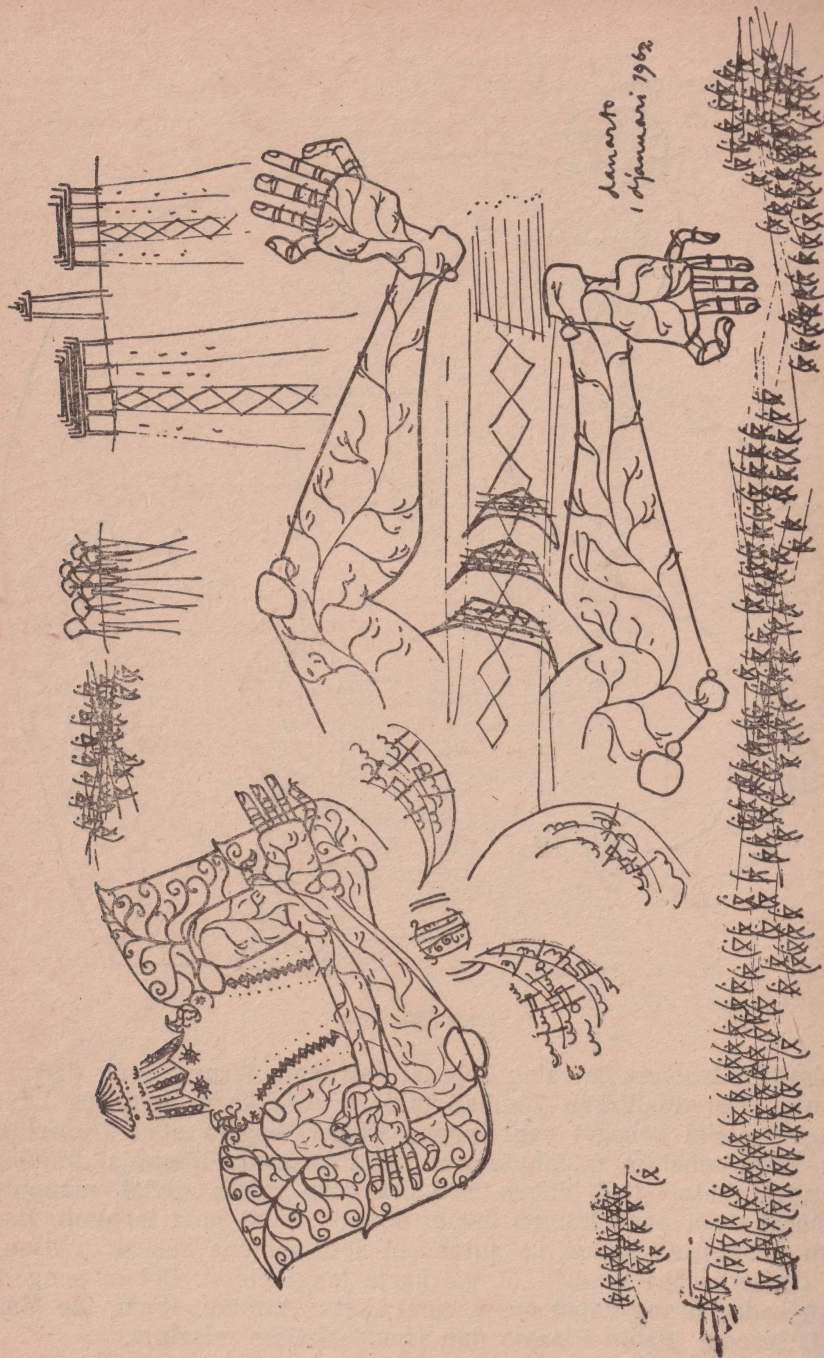 danarto
1 djanuari 1962